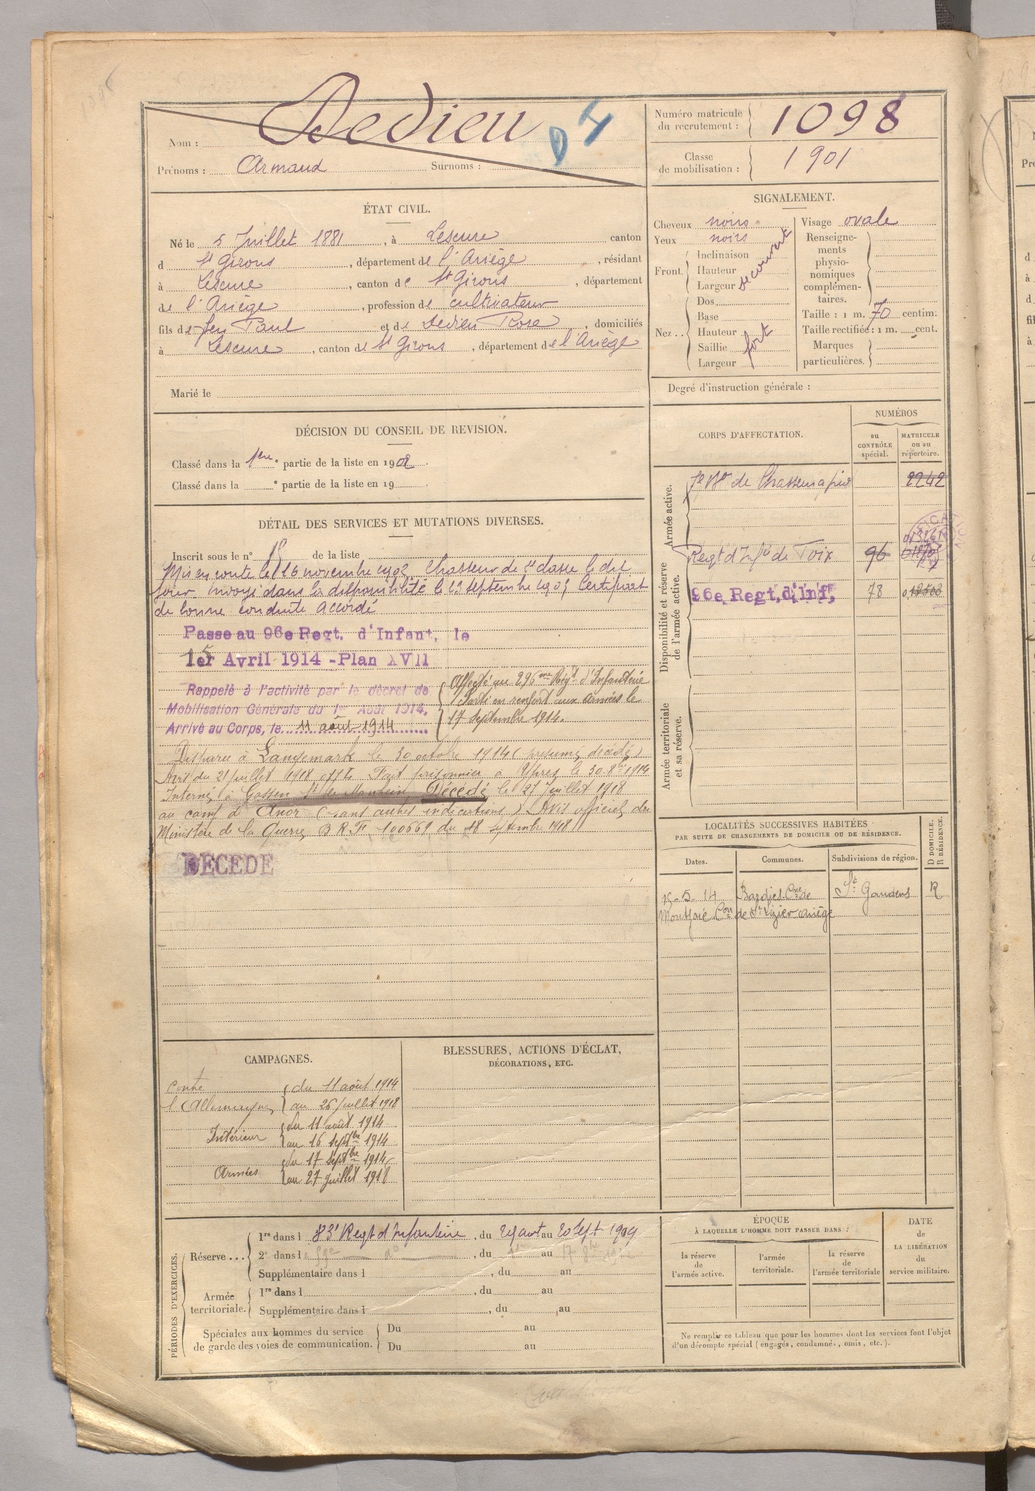 Nom : Dedieu
Prénoms : Armand Surnoms :
Numéro matricule du recrutement : 1098
Classe de mobilisation : 1901
ÉTAT CIVIL.
Né le 5 Juillet 1881, à Lescure canton
d St Girons, département de l'Ariège, résidant
à Lescure, canton de St Girons, département
de l'Ariège, profession de cultivateur
fils de feu Paul et de Dedieu Rose, domiciliés
à Lescure, canton de St Girons, département de l'Ariège
Marié le
SIGNALEMENT.
Cheveux noirs
Yeux noirs
Front. Inclinaison
Hauteur
Largeur découvert
Nez.. Dos
Base
Hauteur
Saillie fort
Largeur
Visage ovale
Renseignements physionomiques complémentaires.
Taille : 1 m. 70 centim.
Taille rectifiée : 1 m. cent.
Marques particulières.
Degré d'instruction générale :
DÉCISION DU CONSEIL DE REVISION.
Classé dans la 1ere partie de la liste en 1902
Classé dans la e partie de la liste en 19
DÉTAIL DES SERVICES ET MUTATIONS DIVERSES.
Inscrit sous le n° de la liste
Mis en route le 16 novembre 1902 Chasseur de 2e classe le dit
jour, envoyé dans la disponibilité le 23 septembre 1905 Certificat
de bonne conduite accordé
Passe au 96e Regt. d'Infant, le
15
1er Avril 1914 - Plan XVII
Rappelé à l'activité par le décret de
Mobilisation Générale du 1er Août 1914,
Arrivé au Corps, le 11 août 1914
Affecté au 296me Régt d'Infanterie
Parti en renfort aux armées le
17 septembre 1914.
Disparu à Langemark le 30 octobre 1914 (présumé décédé)
Avis du 21 juillet 1918 Fait prisonnier à Ypres le 30. 8bre 1914
Interné à Gossen Décédé le 27 juillet 1918
au camp d'Anor (sans autres indications) Avis officiel du
Ministère de la Guerre B.R.F 100569 du 18 septembre 1918
DÉCÉDÉ
CORPS D'AFFECTATION.
NUMÉROS
au CONTRÔLE spécial.
MATRICULE ou au répertoire.
Armée active.
7e Bon de Chasseurs à pied 2242
Disponibilité et réserve de l'armée active.
Regt d'Infie de Foix 96
96e Regt, d'Inf, 78
Armée territoriale et sa réserve.
LOCALITÉS SUCCESSIVES HABITÉES
PAR SUITE DE CHANGEMENTS DE DOMICILE OU DE RÉSIDENCE.
Dates. Communes. Subdivisions de région. D DOMICILE. R RÉSIDENCE.
15-5-14 Cne de St. Gaudens R
Montfaie Con de St Lizier Ariège
CAMPAGNES.
Contre l'Allemagne du 11 août 1914
au 26 juillet 1918
Intérieur du 11 août 1914
au 16 septbre 1914
Armées du 17 septbre 1914
au 27 juillet 1918
BLESSURES, ACTIONS D'ÉCLAT,
DÉCORATIONS, ETC.
PÉRIODES D'EXERCICES.
Réserve... 1re dans l 83e Regt d'Infanterie, du 29 aout au 20 Sept 1909
2e dans l , du au
Supplémentaire dans l , du au
Armée territoriale. 1re dans l , du au
Supplémentaire dans l , du au
Spéciales aux hommes du service de garde des voies de communication. Du au
Du au
ÉPOQUE
À LAQUELLE L'HOMME DOIT PASSER DANS :
la réserve de l'armée active.
l'armée territoriale.
la réserve de l'armée territoriale
DATE DE LA LIBÉRATION du service militaire.
Ne remplir ce tableau que pour les hommes dont les services font l'objet
d'un décompte spécial (engagés, condamnés, omis, etc.).